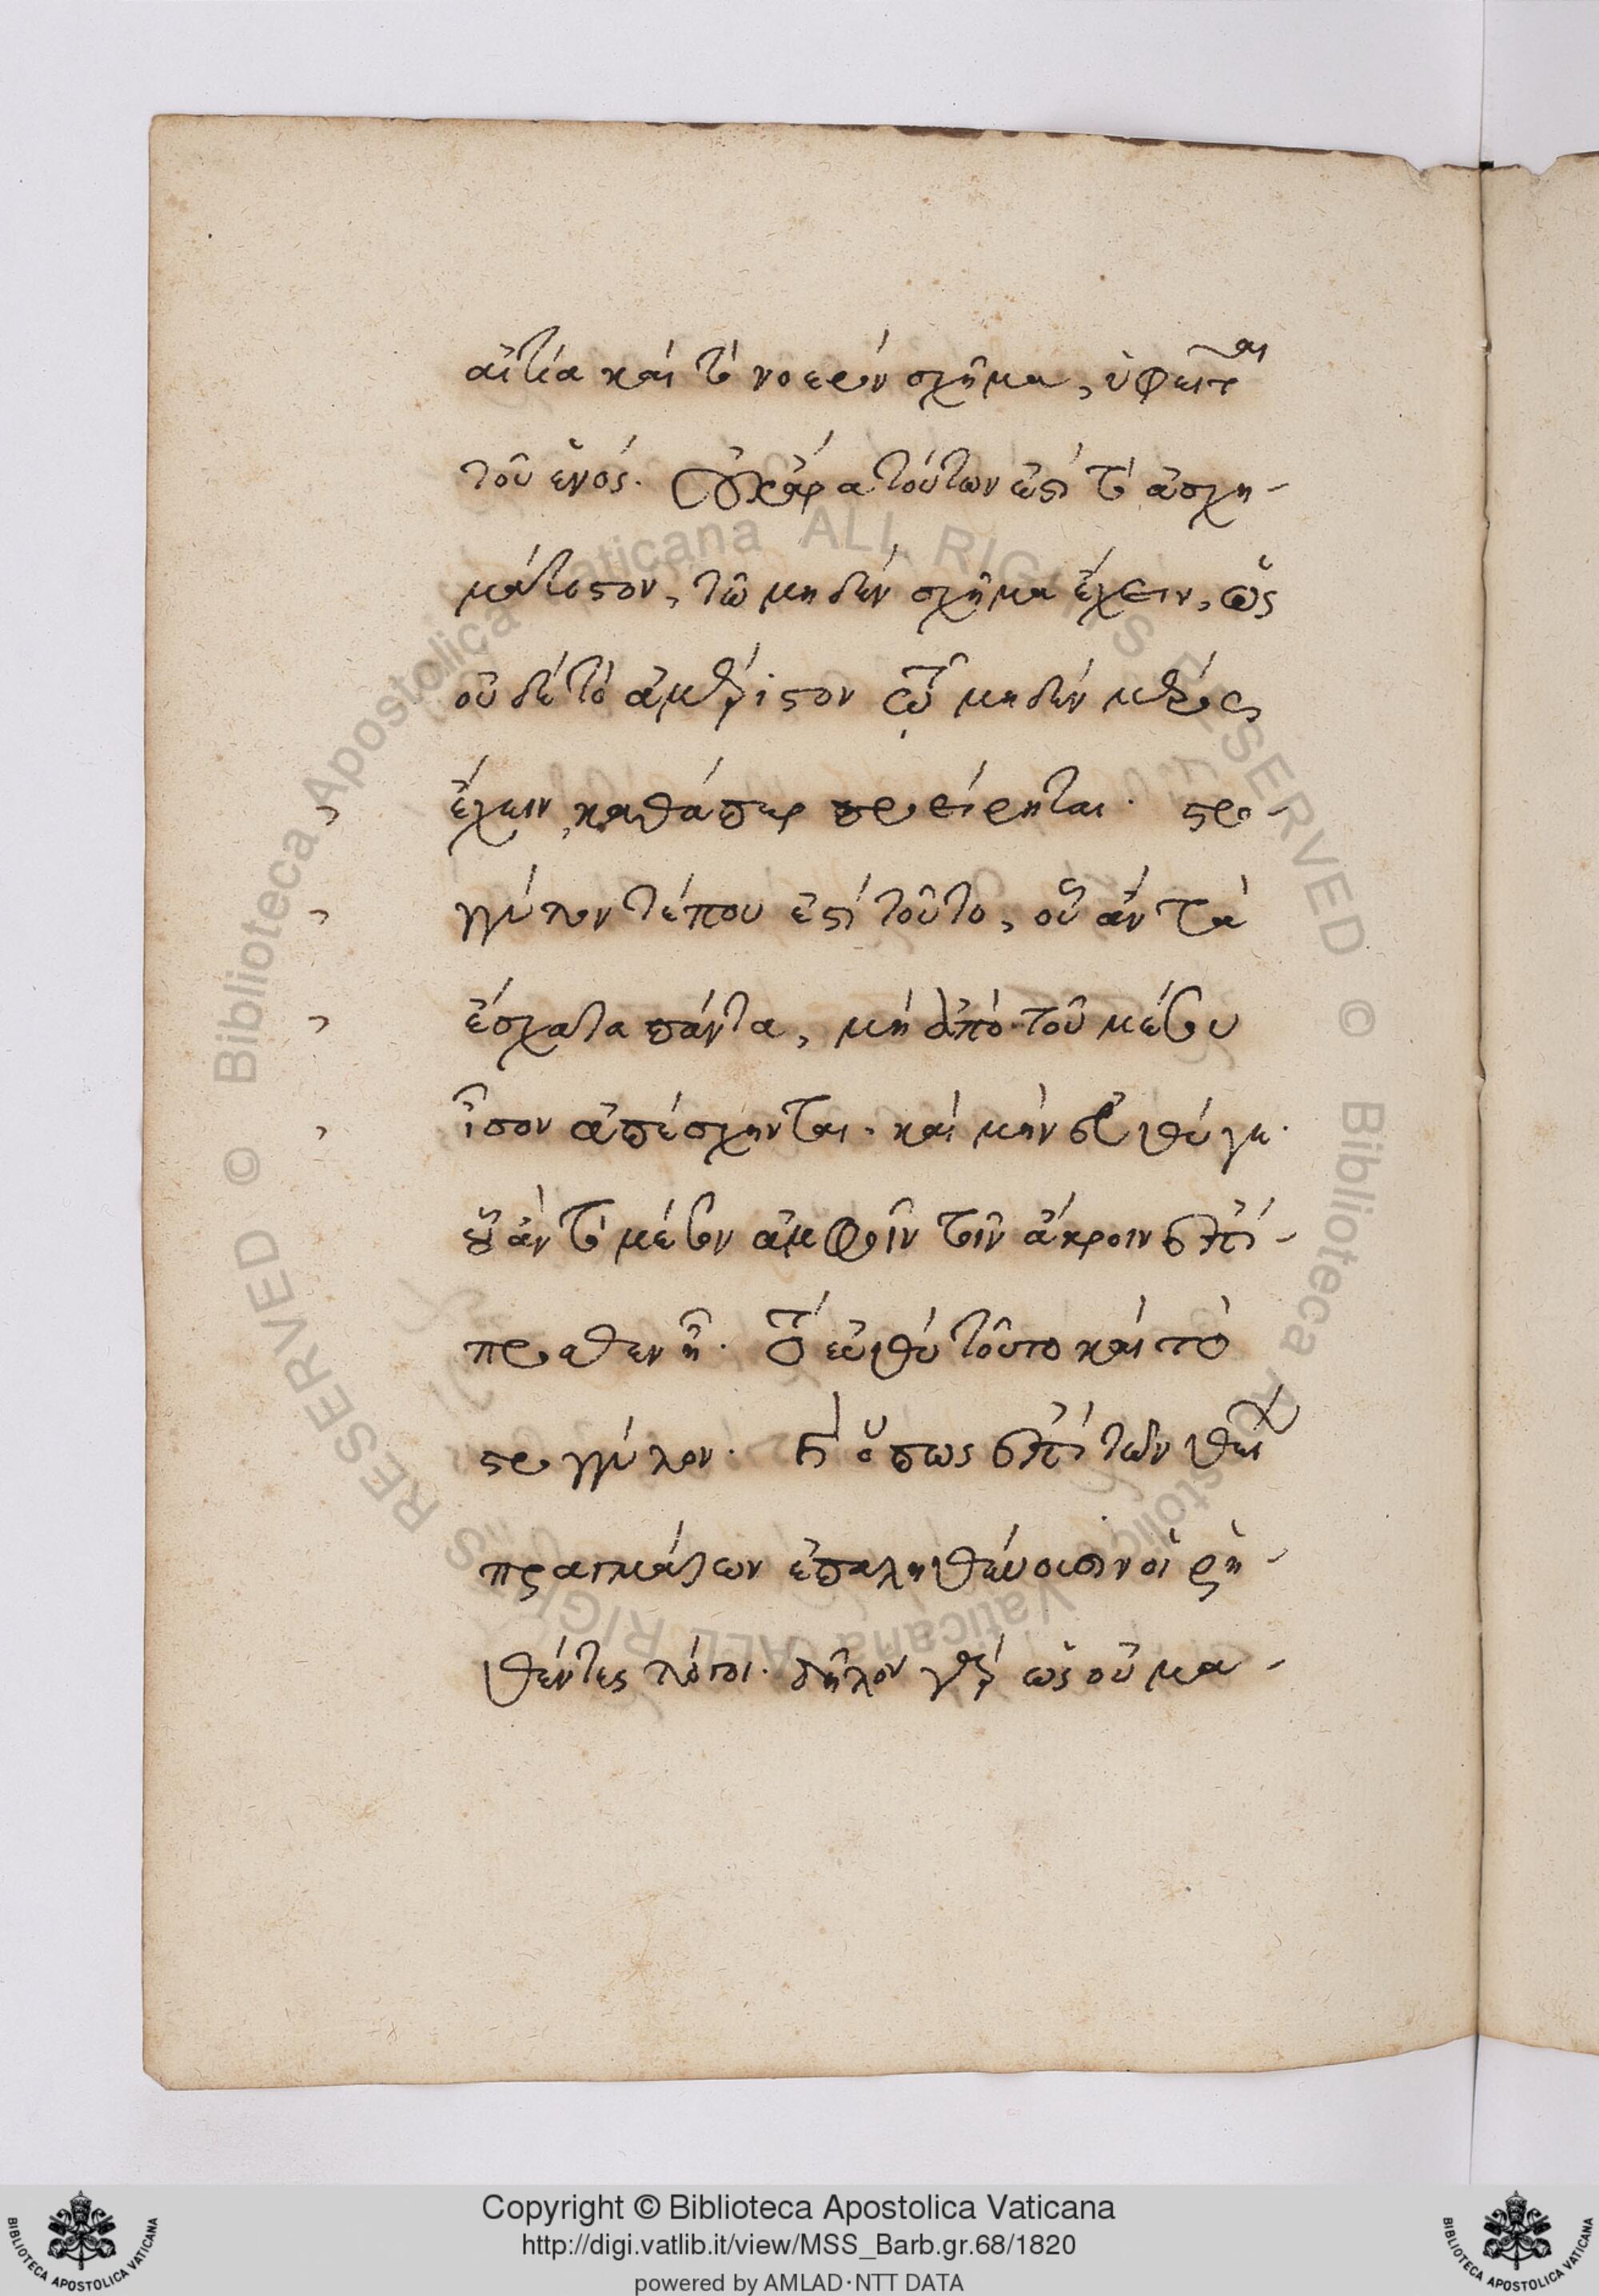 αἰτία καὶ τὸ νοερὸν σχῆμα, ὑφεῖται
τοῦ ἑνός. Οὐ χεῖρα τούτων ἐστὶ τὸ ἀσχη-
μάτιστον, τῷ μηδὲν σχῆμα ἔχειν, ὡς
οὐδὲ τὸ ἀμέριστον τῷ μηδὲν μέρος
ἔχειν, καθάπερ προείρηται. στρο-
γγύλον τέ που ἐστὶ τοῦτο, οὗ ἂν τὰ
ἔσχατα πάντα, μὴ ἀπὸ τοῦ μέσου
ἴσον ἀπέσχηνται. καὶ μὴν εὐθύ γε.
οὗ ἂν τὸ μέσον ἀμφοῖν τοῖν ἄκροιν ἐπί-
προσθεν ᾖ. Ὅτι εὐθὺ τοῦτο καὶ τὸ
στρογγύλον. ὅπως ἐπὶ τῶν θείων
πραγμάτων ἐπαληθεύουσιν οἱ ῥη-
θέντες λόγοι. δῆλον γὰρ ὡς οὐ μα-
Copyright © Biblioteca Apostolica Vaticana
http://digi.vatlib.it/view/MSS_Barb.gr.68/1820
powered by AMLAD·NTT DATA